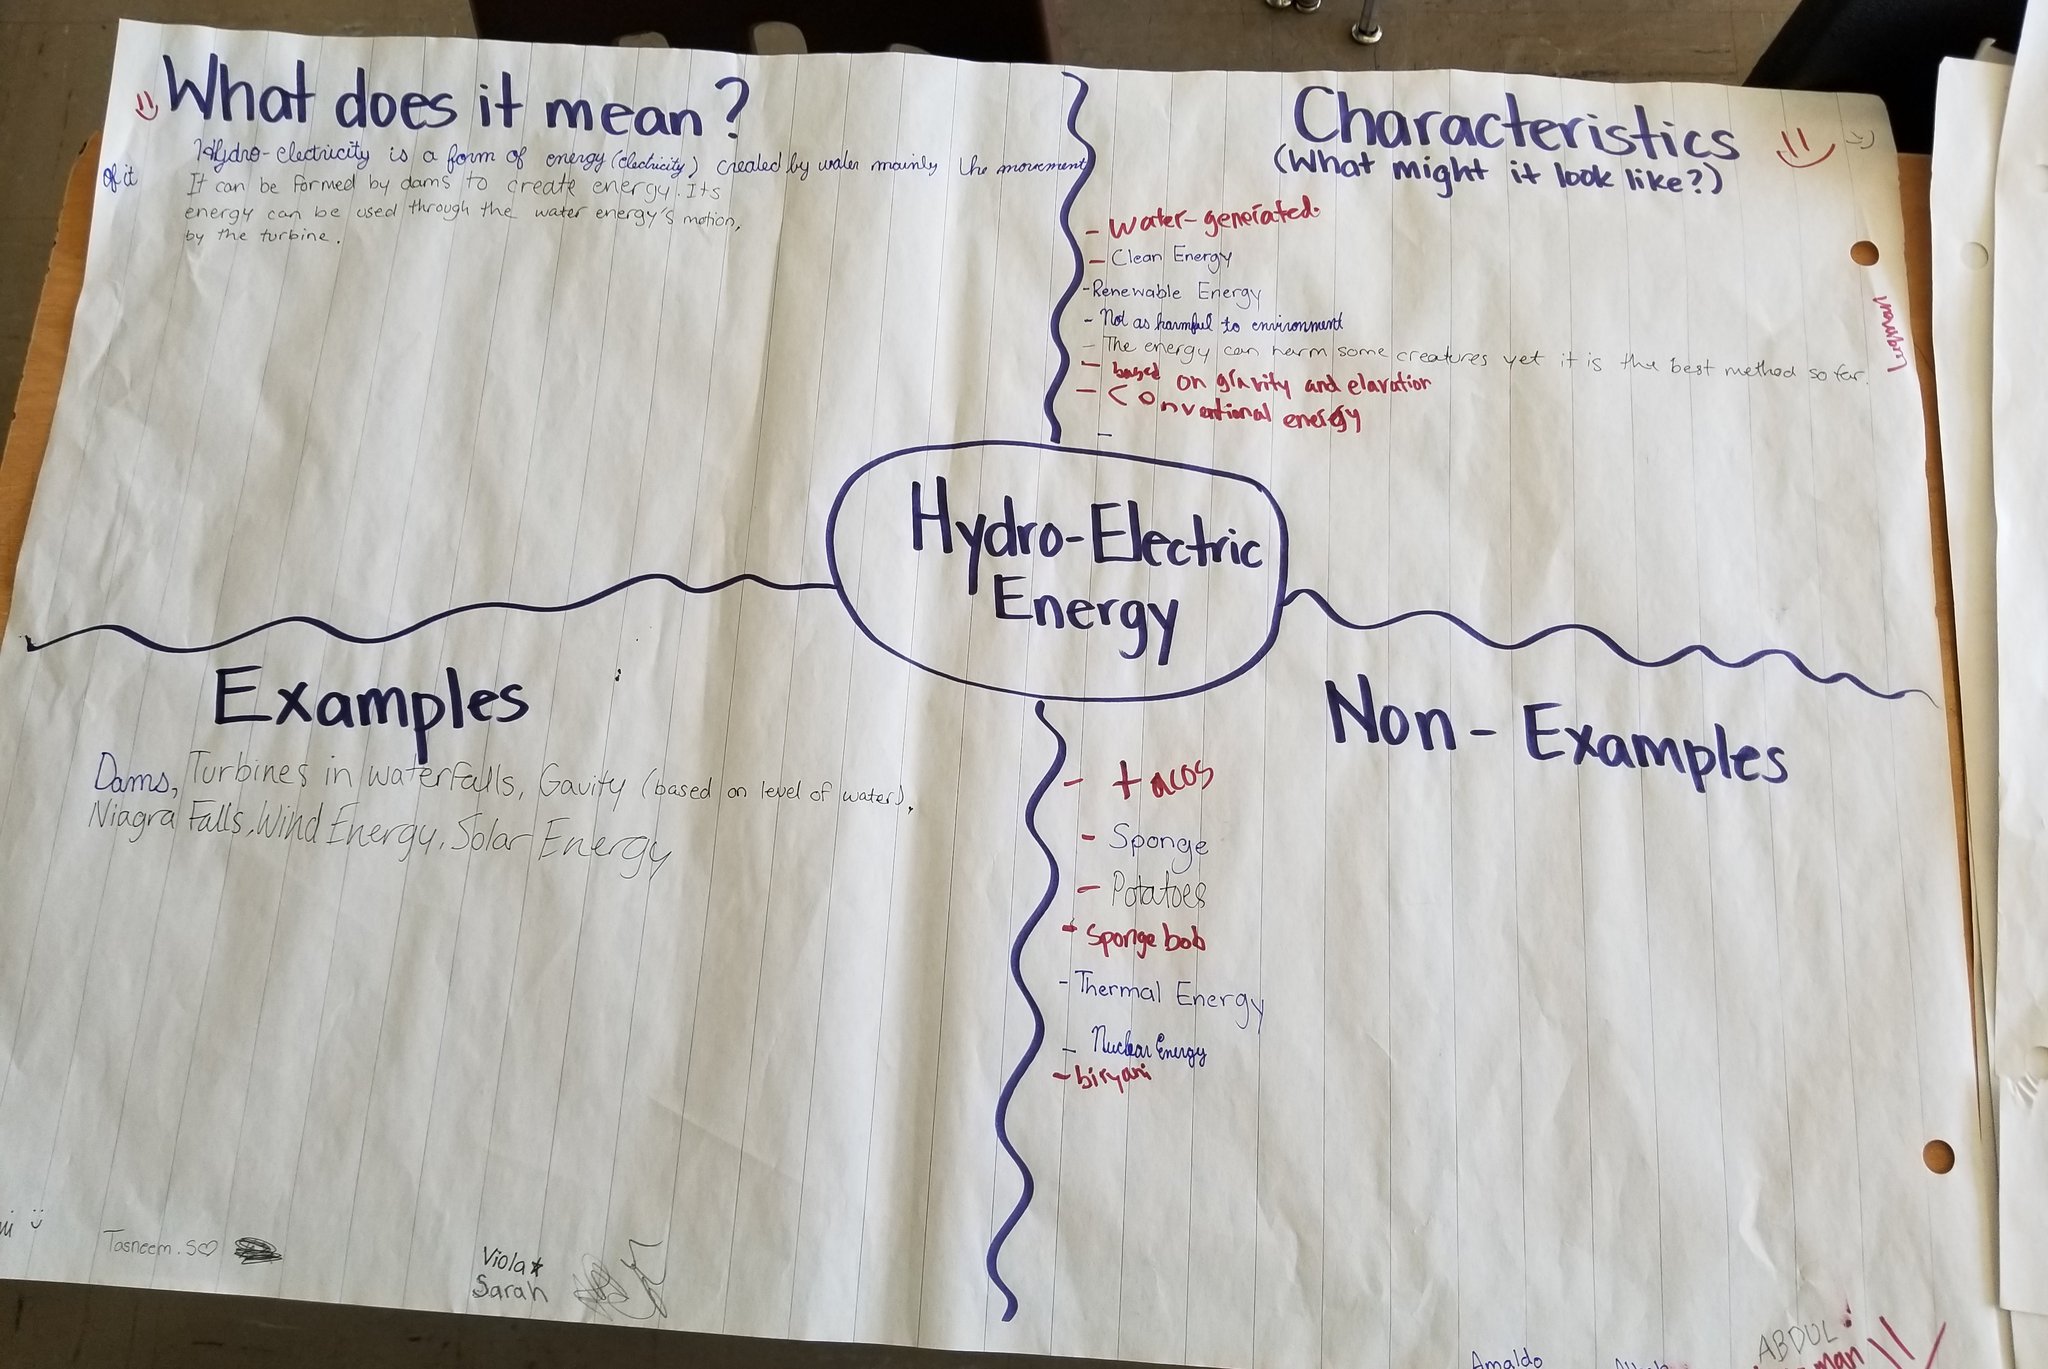 What does it mean?
Hydro-electricity is a form of energy (electricity) created by water mainly the movement
of it
It can be formed by dams to create energy. Its
energy can be used through the water energy's motion,
by the turbine.
Characteristics
(What might it look like?)
- Water-generiated.
- Clean Energy
- Renewable Energy
- Not as harmful to environment
- The energy can harm some creatures yet it is the best method so far.
- based on gravity and elavation
- Conventional energy
-
Luqman
Hydro-Electric
Energy
Examples
Dams, Turbines in waterfalls, Gavity (based on level of water),
Niagra Falls, Wind Energy, Solar Energy
Non-Examples
- tacos
- Sponge
- Potatoes
- Sponge bob
- Thermal Energy
- Nuclear Energy
- biryani
Tasneem.S
Viola
Sarah
ABDUL
man
Arnaldo